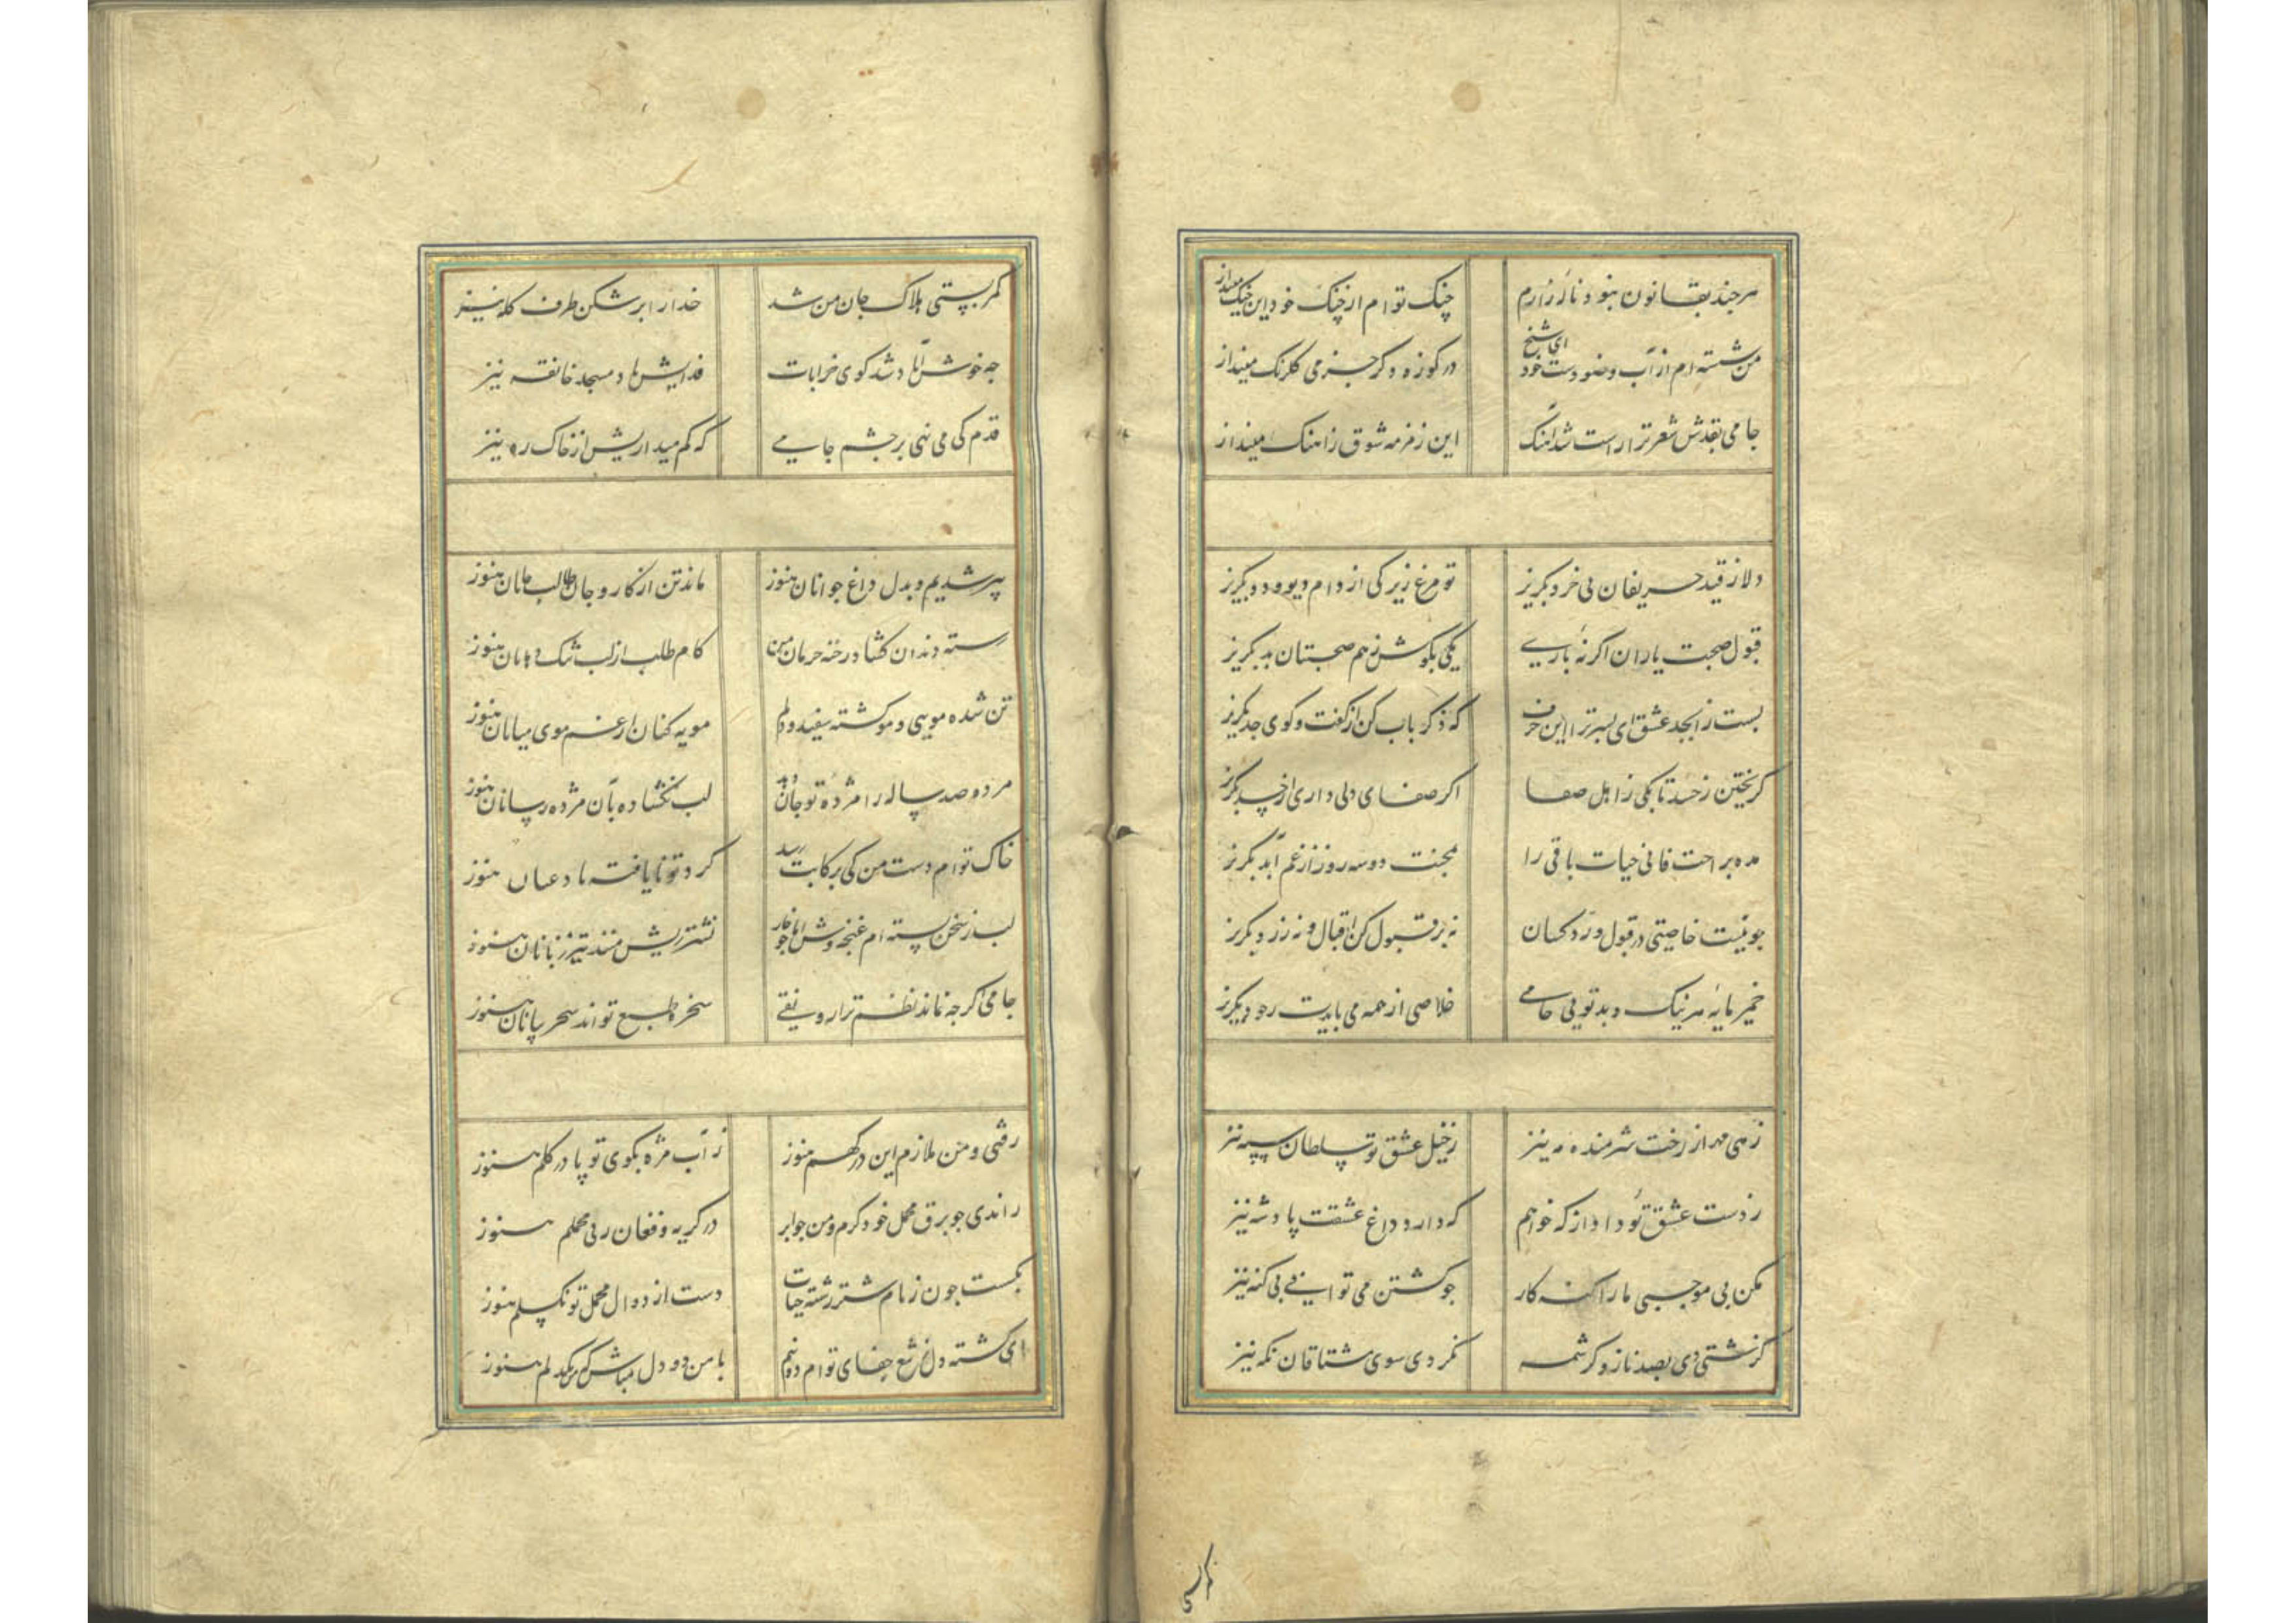 هرچند بقانون نبود نالهٔ زارم چنک توام از چنک خود این چنک مینداز
من شسته ام از آب وضو دست خود ای شیخ در کوزه دکر جز می کلرنک مینداز
جامی بقدش شعر ترا راست شد آهنک این زمزمه شوق ز آهنک مینداز
دلا ز قید حریفان بی خرد بکریز تو مرغ زیرکی از دام دیو و دد بکریز
قبول صحبت یاران اکر نهٔ باری یکی بکوش ز هم صحبتان بد بکریز
بست ز ابجد عشق ای پسر ترا این حرف که ذکر باب کن از کفت و کوی جد بکریز
کریختن ز حسد تا بکی ز اهل صفا اکر صفای دلی داری از حسد بکریز
مده براحت فانی حیات باقی را بمحنت دو سه روز از غم ابد بکریز
چو نیست خاصیتی در قبول و رد کسان نه بر قبول کن اقبال و نه ز رد بکریز
خمیر مایهٔ هر نیک و بد تویی جامی خلاصی از همه می بایدت ز خود بکریز
زهی مهر از رخت شرمنده مه نیز ز خیل عشق تو سلطان سپه نیز
ز دست عشق تو داد از که خواهم که دارد داغ عشقت پادشه نیز
مکن بی موجبی ما را کنه کار چو کشتن می توانی بی کنه نیز
کذشتی دی بصد ناز و کرشمه نکردی سوی مشتاقان نکه نیز
کمر بستی هلاک جان من شد خدا را بر شکن طرف کله نیز
چه خوش آباد شد کوی خرابات فدایش باد مسجد خانقه نیز
قدم کی می نهی بر چشم جامی که کم میداریش از خاک ره نیز
پیر شدیم و بدل داغ جوانان هنوز ماند تن از کار و جان طالب جانان هنوز
رسته دندان کشاد رخنه حرمان من کام طلب از لب تنک دهانان هنوز
تن شده مویی و مو کشته سفید و دلم مویه کنان از غم موی میانان هنوز
مرده صد ساله را مژدهٔ تو جان دهد لب نکشاده بآن مژده رسانان هنوز
خاک توام دست من کی برکابت رسد کرد تو نایافته باد عنان هنوز
لب ز سخن بسته ام غنچه وش اما چو خار نشتر ریش منند تیز زبانان هنوز
جامی اکرچه نماند نظم ترا رونقی سخره طبع تواند سحر بیانان هنوز
رفتی و من ملازم این درکهم هنوز ز آب مژه بکوی تو پا در کلم هنوز
راندی چو برق محمل خود کرم و من چو ابر در کریه و فغان ز پی محملم هنوز
بکسست چون زمام شتر رشته حیات دست از دوال محمل تو نکسلم هنوز
ای کشته دل ز تیغ جفای توام دو نیم با من دو دل مباش که من یکدلم هنوز